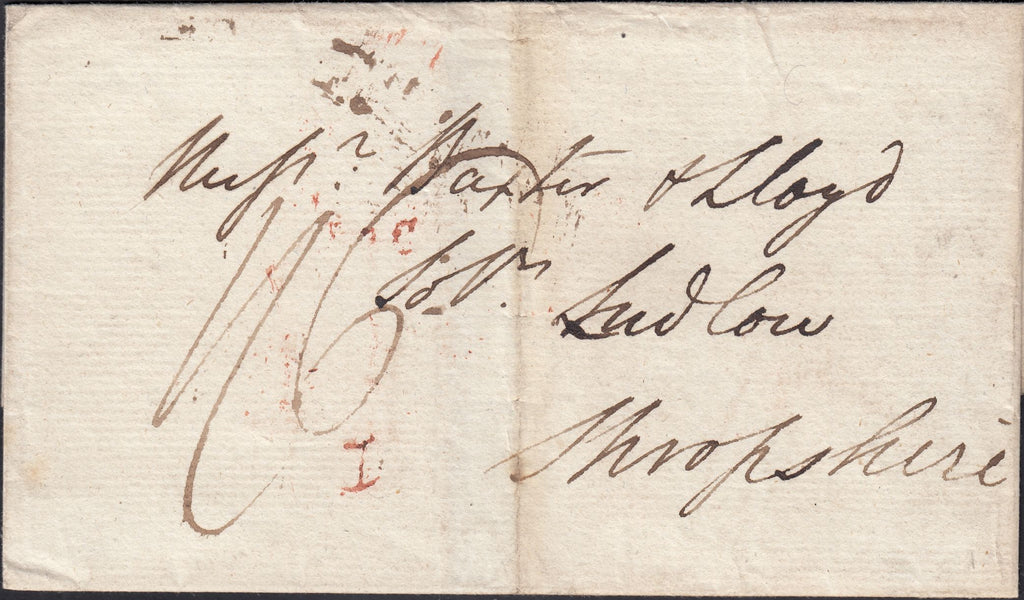 Messrs. Baxter & Lloyd
Solrs. Ludlow
Shropshire
I